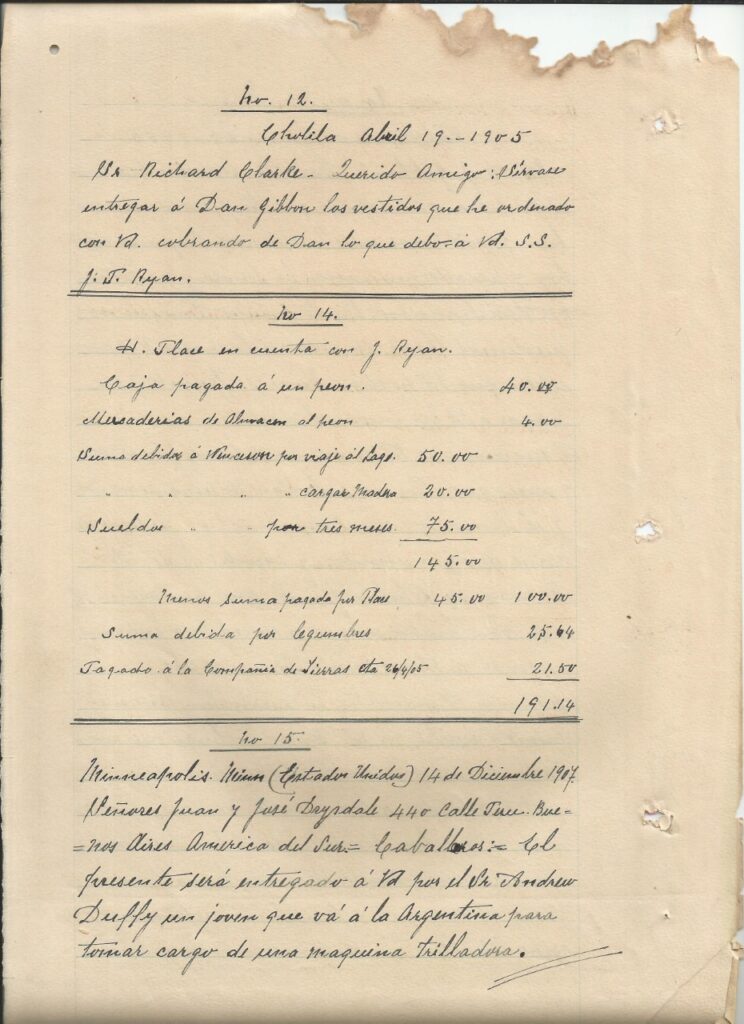 No. 12.
Cholila Abril 19.-1905
Sr Richard Clarke - Querido Amigo: Sírvase
entregar á Dan Gibbon los vestidos que he ordenado
con Vd. cobrando de Dan lo que debo á Vd. S.S.
J. P. Ryan.
No 14.
H. Place en cuenta con J. Ryan.
Caja pagada á un peon. 40.00
Mercaderias de Almacen al peon 4.00
Suma debida á Wenceson por viaje ál Lago. 50.00
" " " " cargar Madera 20.00
Sueldos " " por tres meses. 75.00
145.00
Menos suma pagada por Place 45.00 100.00
Suma debida por legumbres 25.64
Pagado á la Compañia de Tierras cta 26/4/05 21.50
191.14
No 15.
Minneapolis. Minn (Estados Unidos) 14 de Diciembre 1907.
Señores Juan y José Drysdale 440 Calle Peru. Bue-
=nos Aires America del Sur.= Caballeros:= El
presente será entregado á Vd por el Sr Andrew
Duffy un joven que vá á la Argentina para
tomar cargo de una maquina trilladora.